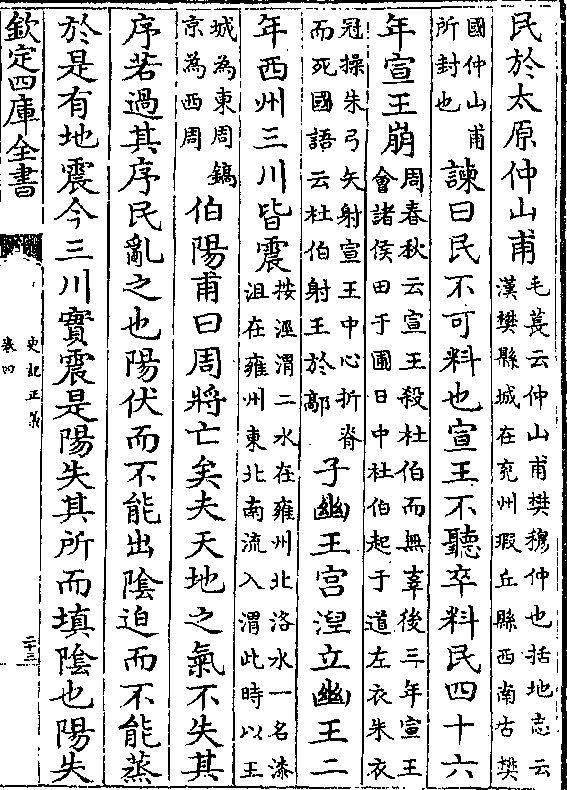 民於太原仲山甫毛萇云仲山甫樊穆仲也括地志云
漢樊縣城在兖州瑕丘縣西南古樊
國仲山甫
所封也
諫曰民不可料也宣王不聽卒料民四十六
年宣王崩周春秋云宣王殺杜伯而無辜後三年宣王
會諸侯田于圃日中杜伯起于道左衣朱衣
冠操朱弓矢射宣王中心折脊
而死國語云杜伯射王於鄗
子幽王宫湦立幽王二
年西州三川皆震按涇渭二水在雍州北洛水一名漆
沮在雍州東北南流入渭此時以王
城為東周鎬
京為西周
伯陽甫曰周將亡矣夫天地之氣不失其
序若過其序民亂之也陽伏而不能出陰迫而不能蒸
於是有地震今三川實震是陽失其所而填陰也陽失
欽定四庫全書
史記正義
卷四
二十三